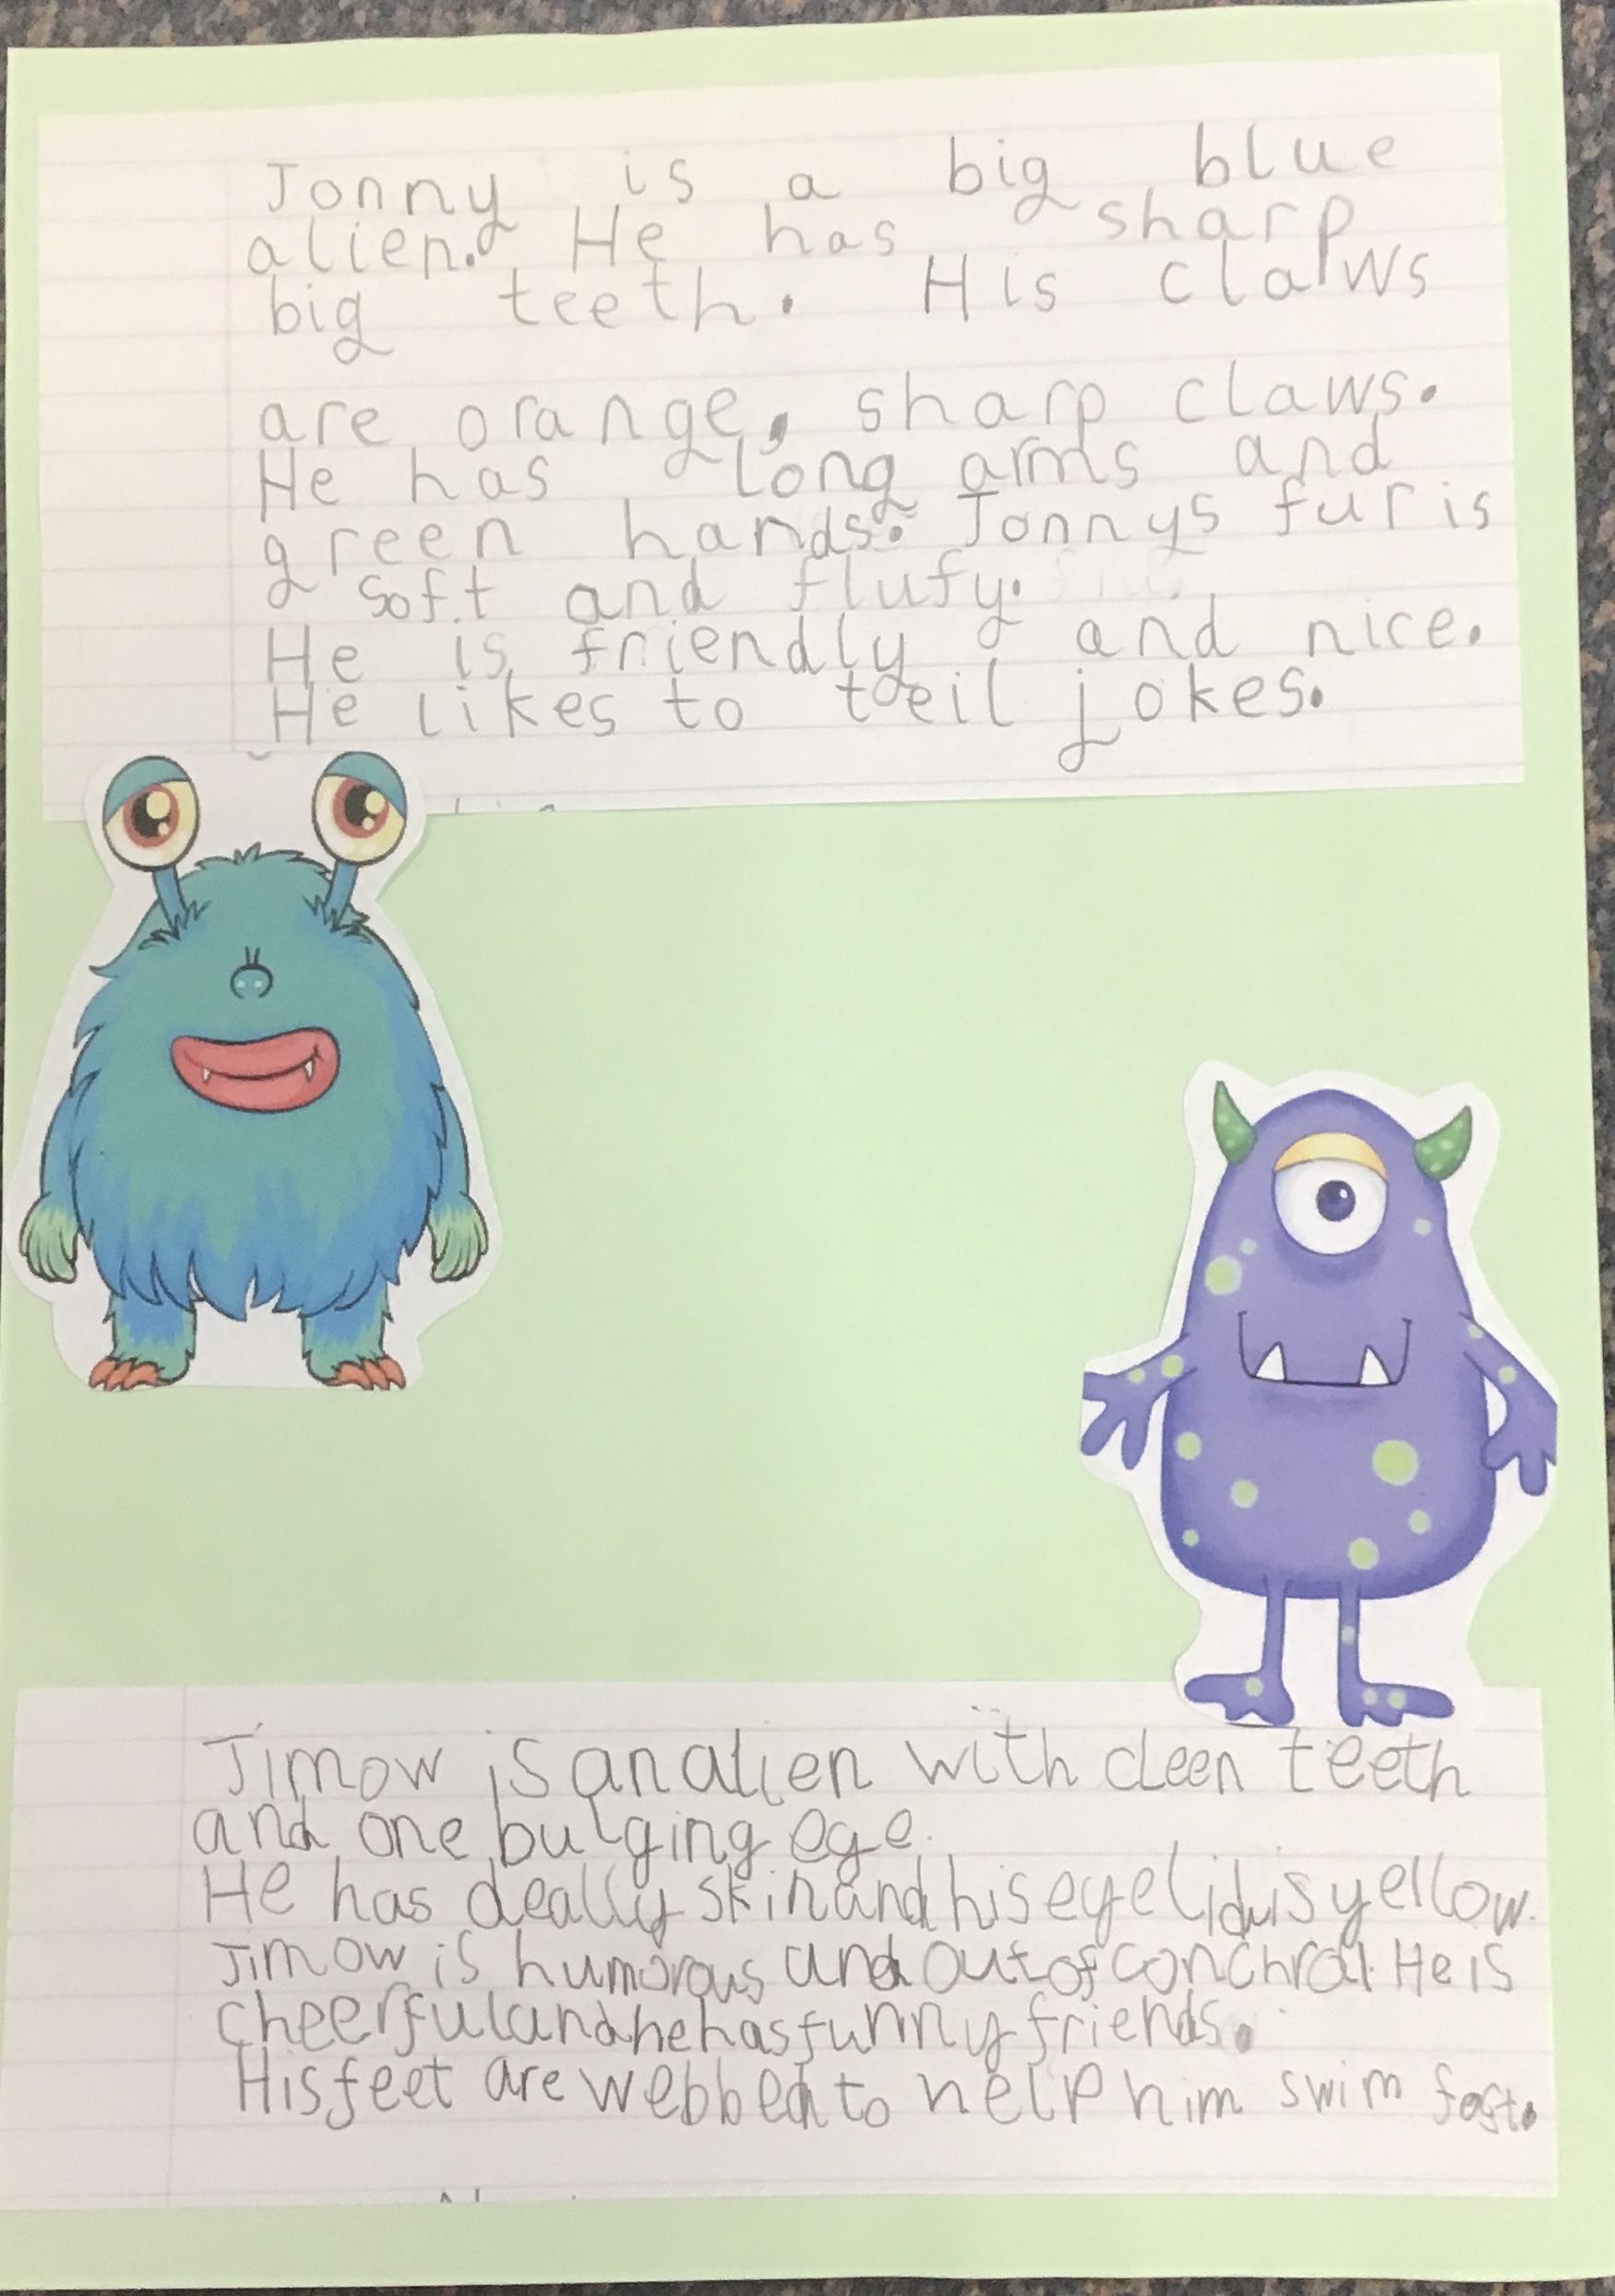 Jonny is a big blue
alien. He has sharp
big teeth. His claws
are orange, sharp claws.
He has long arms and
green hands. Jonnys fur is
soft and flufy.
He is friendly and nice.
He likes to teil jokes.
Jimow is an alien with cleen teeth
and one bulging eye.
He has deally skin and his eyelid is yellow.
Jimow is humorous and out of conchrol. He is
cheerful and he has funny friends.
His feet are webbed to help him swim fast.